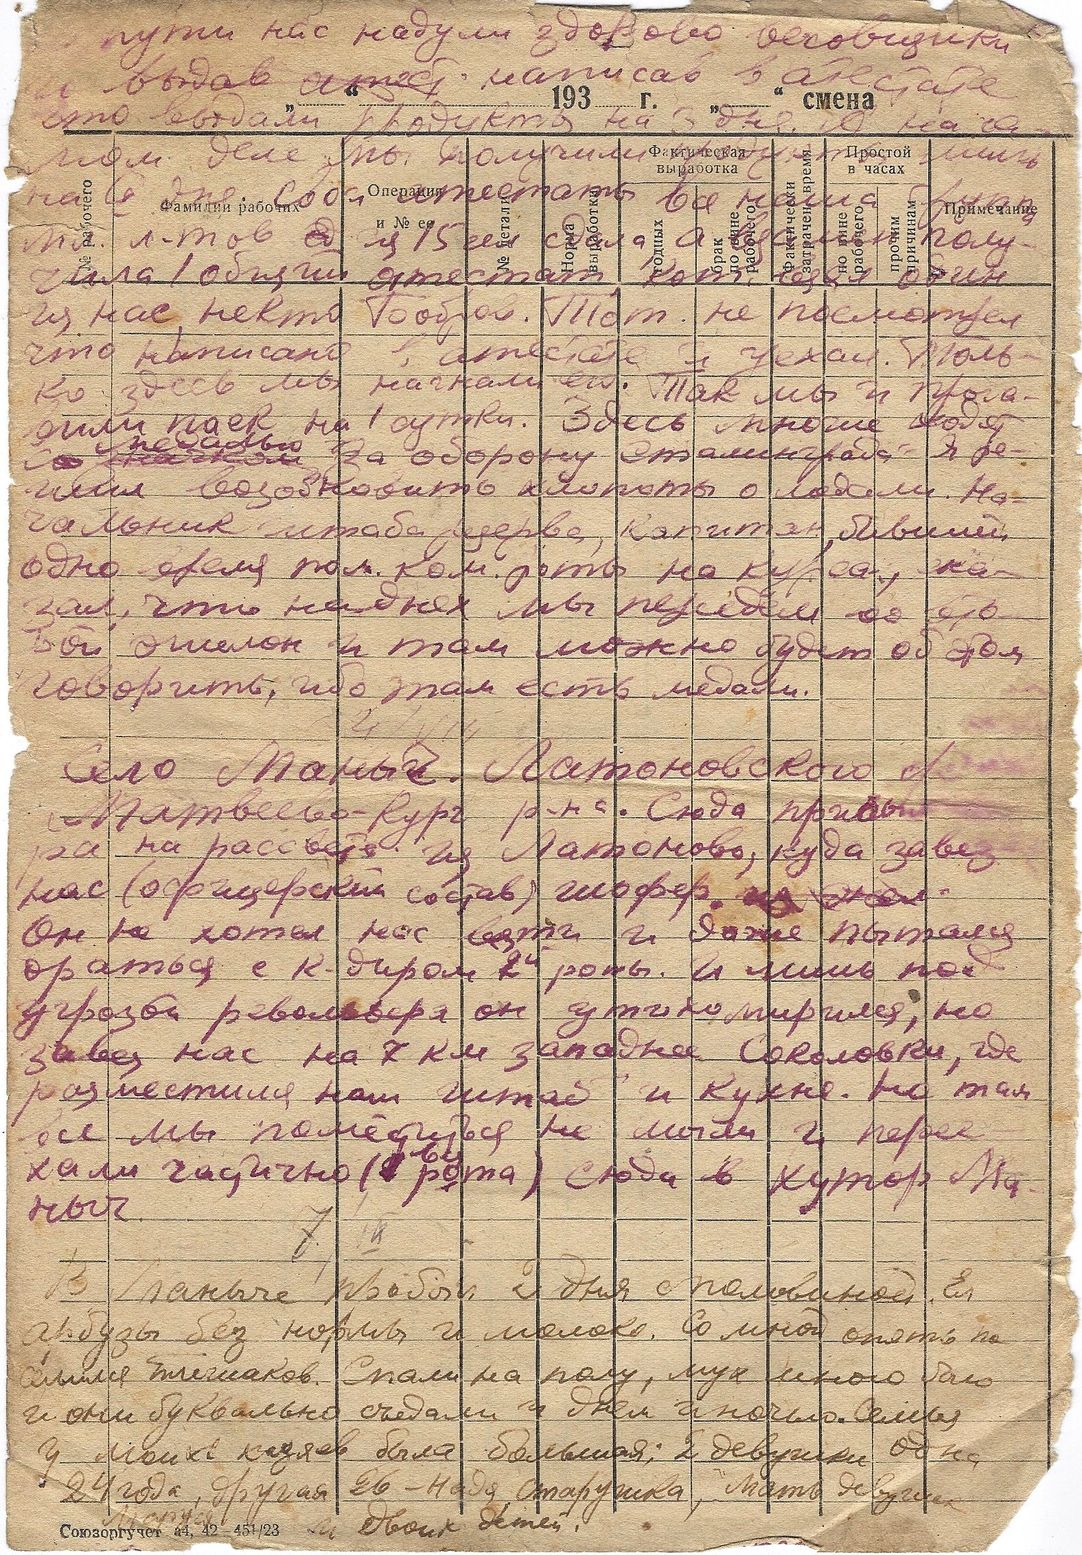 пути нас надули здорово веховщики
и выдав атест. написав в атестате
„ “ 193 г. „ “ смена
что выдали продукты на 3 дня. А на са-
мом деле мы получили лишь
на дня. Свои атестаты вся наша
мл. л-тов из 15 чел сдала, а взамен полу-
чила 1 общий атестат, кот. взял один
из нас, некто Бобров. Тот не посмотрел
что написано в атестате и уехал. Толь-
ко здесь мы нагнали его. Так мы и прога-
дили паек на 1 сутки. Здесь многие ходят
со значком медалью За оборону Сталинграда. Я ре-
шил возобновить хлопоты о медали. На-
чальник штаба резерва, капитан, бывший
одно время пом. ком. роты на курсах, ска-
зал, что на днях мы перейдем во вто-
рой эшелон и там можно будет об этом
говорить, ибо там есть медали.
№ рабочего
Фамилии рабочих
Операция и № ее
№ детали
Норма выработки
Фактическая выработка
годных
брак по вине рабочего
Фактически затрачен. время
Простой в часах
по вине рабочего
прочим причинам
Примечание
Село Маныч. Латоновского
Матвеево-Кург р-на. Сюда прибыл
на рассвете из Латоново, куда завез
нас (офицерский состав) шофер.
Он не хотел нас везти и даже пытался
драться с к-диром 2й роты. И лишь под
угрозой револьвера он утихомирился, но
завез нас на 7 км западнее Соколовки, где
разместился наш штаб и кухня. Но там
все мы поместиться не могли и перее
хали частично (1 рота) сюда в хутор Ма-
ныч.
7/
В Маныче пробыл 2 дня с половиной. Ел
арбузы без нормы и молоко. Со мной опять по
селился Плешаков. Спали на полу, мух много было
и они буквально съедали и днем и ночью. Семья
у моих хозяев была большая: 2 девушки одна
24 года, другая 26 – Надя, старушка, мать девушек
Мария и двоих детей.
Союзоргучет а4, 42—451/23